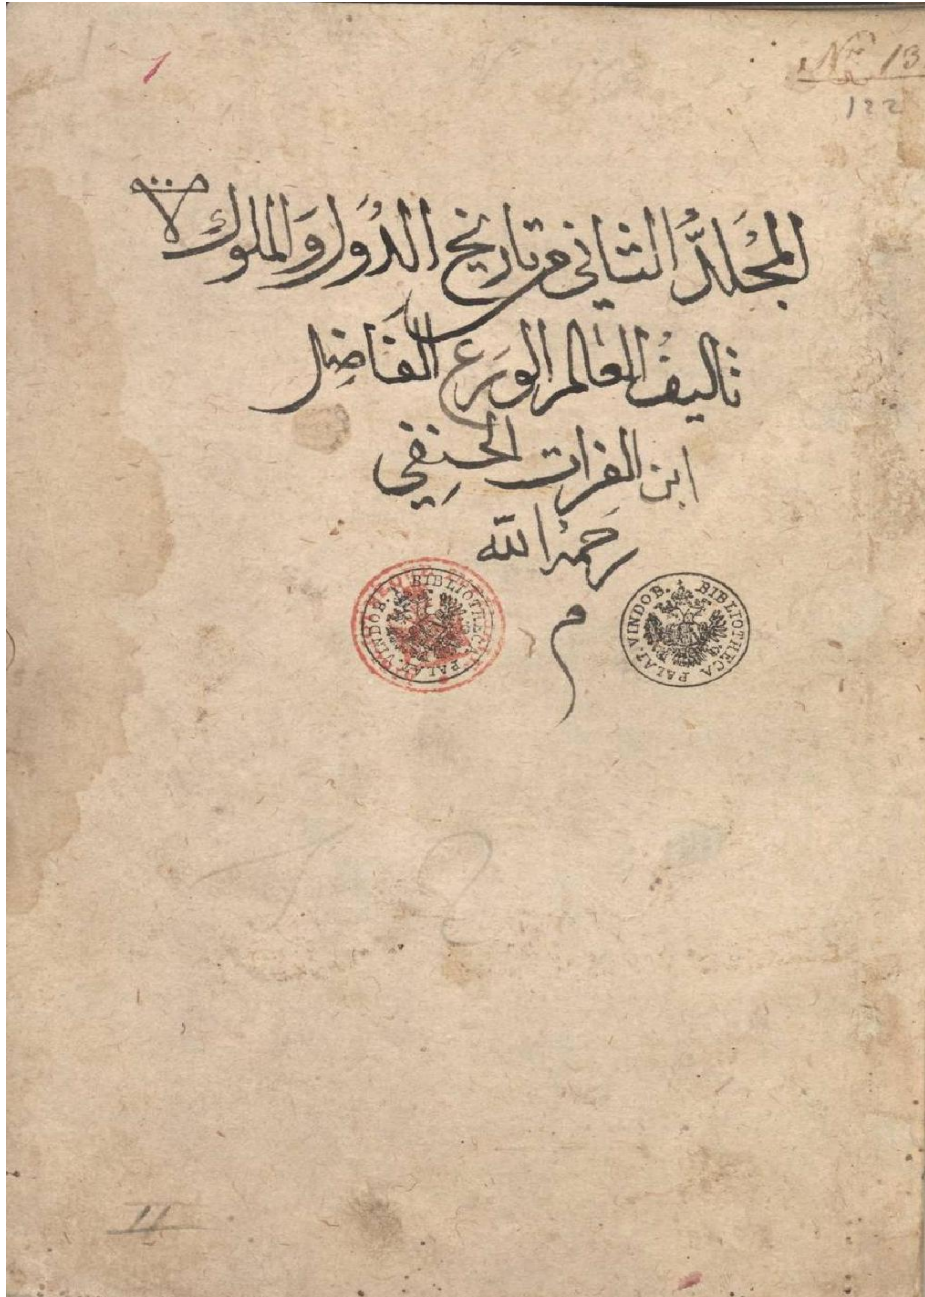 Nr 13
122
المجَلدُ الثاني من تاريخ الدُوَل وَالملوك
تاليفُ العَالم الوَرع الفَاضِل
ابن الفرات الحنِفي
رَحمهُ الله
م
BIBLIOTHECA PALAT. VINDOB.
BIBLIOTHECA PALAT. VINDOB.
II